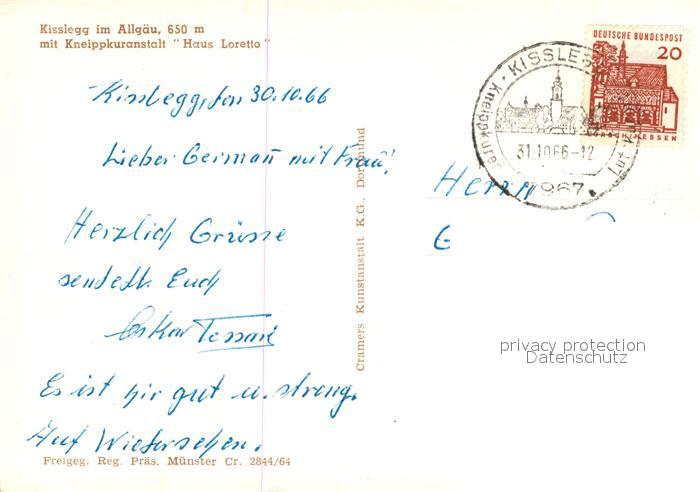 Kisslegg im Allgäu, 650 m
mit Kneippkuranstalt "Haus Loretto"
Kisslegg, den 30.10.66
Lieber Germañ mit Frau!
Herzlich Grüsse
sendet Euch
Oskar
Es ist hir gut u. streng.
Auf Wiedersehen.
Freigeg. Reg. Präs. Münster Cr. 2844/64
Cramers Kunstanstalt K.G., Dortmund
DEUTSCHE BUNDESPOST
20
LORSCH/HESSEN
KISSLEGG
Kneippkur
31.10.66-12
Luft
7967
Herrn
G
privacy protection
Datenschutz